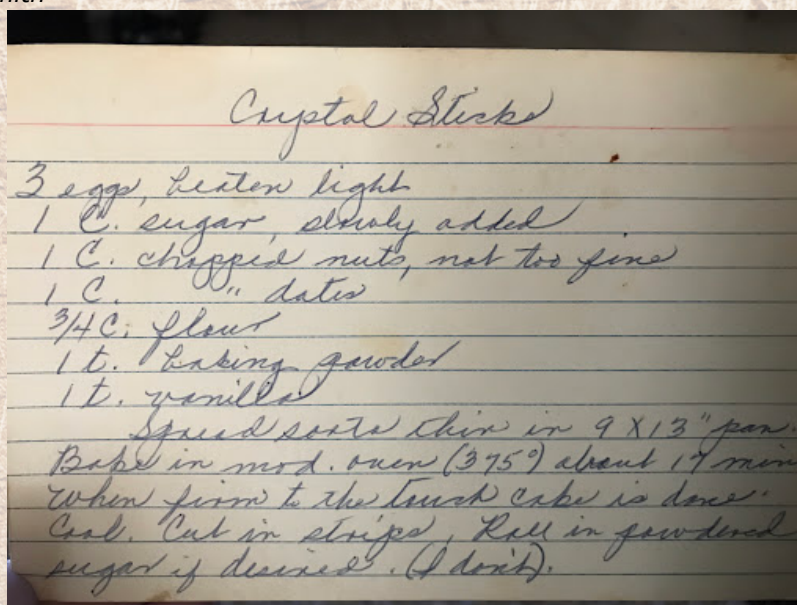 Crystal Sticks
3 eggs, beaten light
1 C. sugar, slowly added
1 C. chopped nuts, not too fine
1 C. " dates
3/4 C. flour
1 t. baking powder
1 t. vanilla
Spread sorta thin in 9 X 13" pan.
Bake in mod. oven (375°) about 17 min
When firm to the touch cake is done.
Cool. Cut in strips. Roll in powdered
sugar if desired. (I don't).